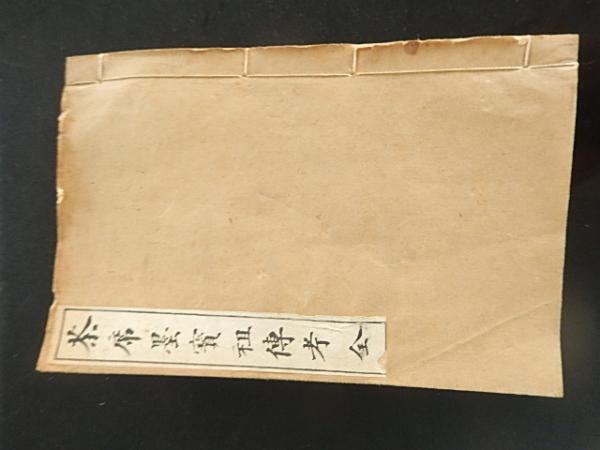 茶席墨寳祖傳考 全